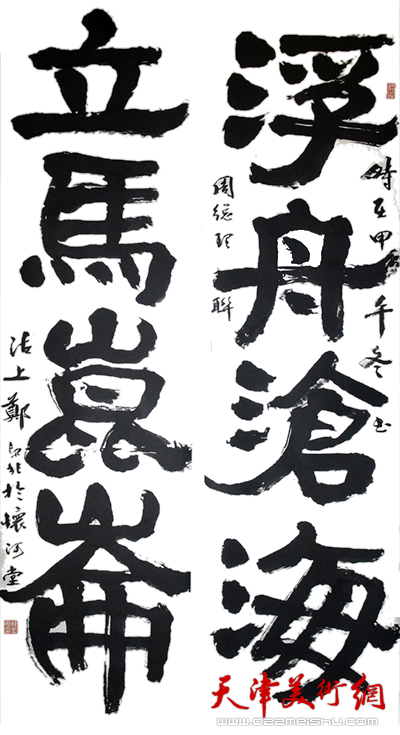 浮舟滄海
時在甲午冬书
周総理聯
立馬崑崙
沽上鄭
於懷河堂
天津美術網
www.022meishu.com